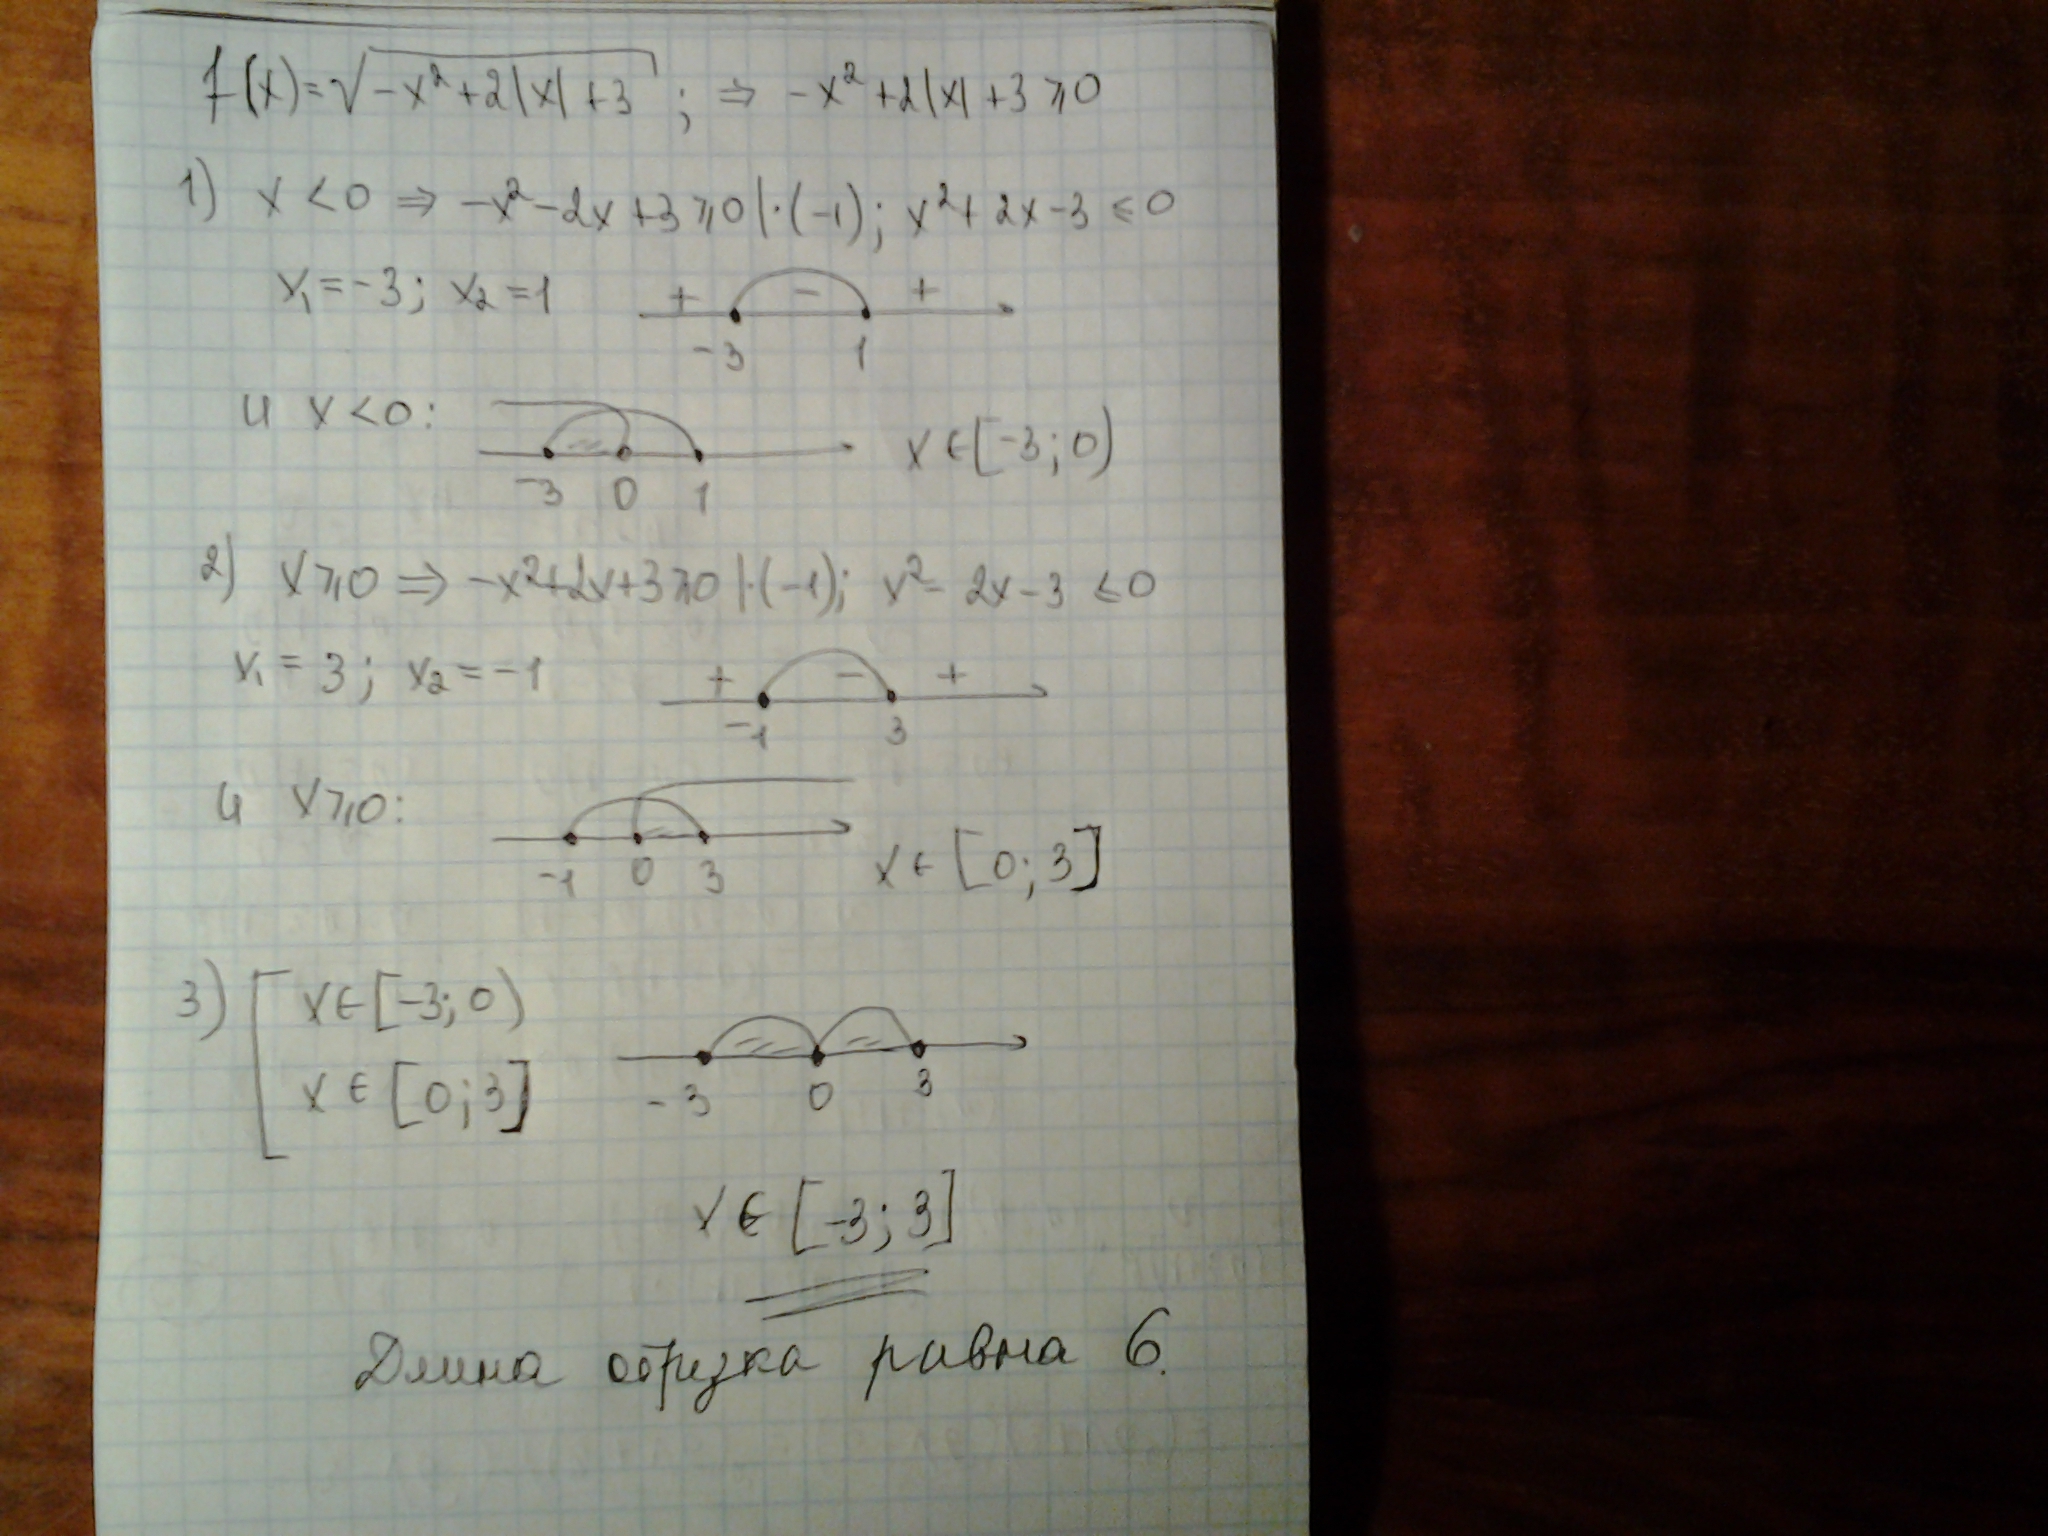 f(x)=√(-x²+2|x|+3) ; ⇒ -x²+2|x|+3⩾0
1) x<0 ⇒ -x²-2x+3⩾0 |·(-1); x²+2x-3⩽0
x₁=-3; x₂=1 + - +
-3 1
и x<0: x∈[-3;0)
-3 0 1
2) x⩾0 ⇒ -x²+2x+3⩾0 |·(-1); x²-2x-3⩽0
x₁=3; x₂=-1 + - +
-1 3
и x⩾0:
-1 0 3 x∈[0;3]
3) [ x∈[-3;0)
x∈[0;3] -3 0 3
x∈[-3;3]
Длина отрезка равна 6.